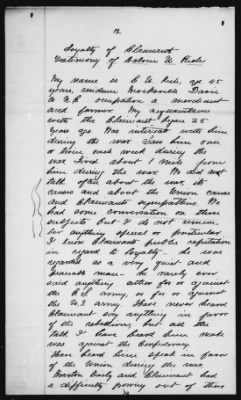 12
Loyalty of Claimant
Testimony of Calvin U. Rich
My name is C U Rich, age 45
years, residence Mocksville Davie
Co N.C. ocupation a merchant
and farmer My acquaintance
with the Claimant began 25
years ago. Was intimate with him
during the war Saw him one
or twice each week during the
war. Lived about 1 mile from
him during the war. We did not
talk often about the war its
causes and about the Union cause
and Claimants sympathies. We
had some conversation on these
subjects but I do not remem-
ber anything special or particular
I know Claimants public reputation
in regard to loyalty - he was
regarded as a very quiet and
peaceable man - he rarely ever
said anything either for or against
the C.S. army, or for or against
the U.S. army. Have never heard
Claimant say anything in favor
of the rebellion, but all the
talk I have heard him make
was against the Confederacy.
Have heard him speak in favor
of the Union during the war
and Claimant had
a difficulty growing out of this